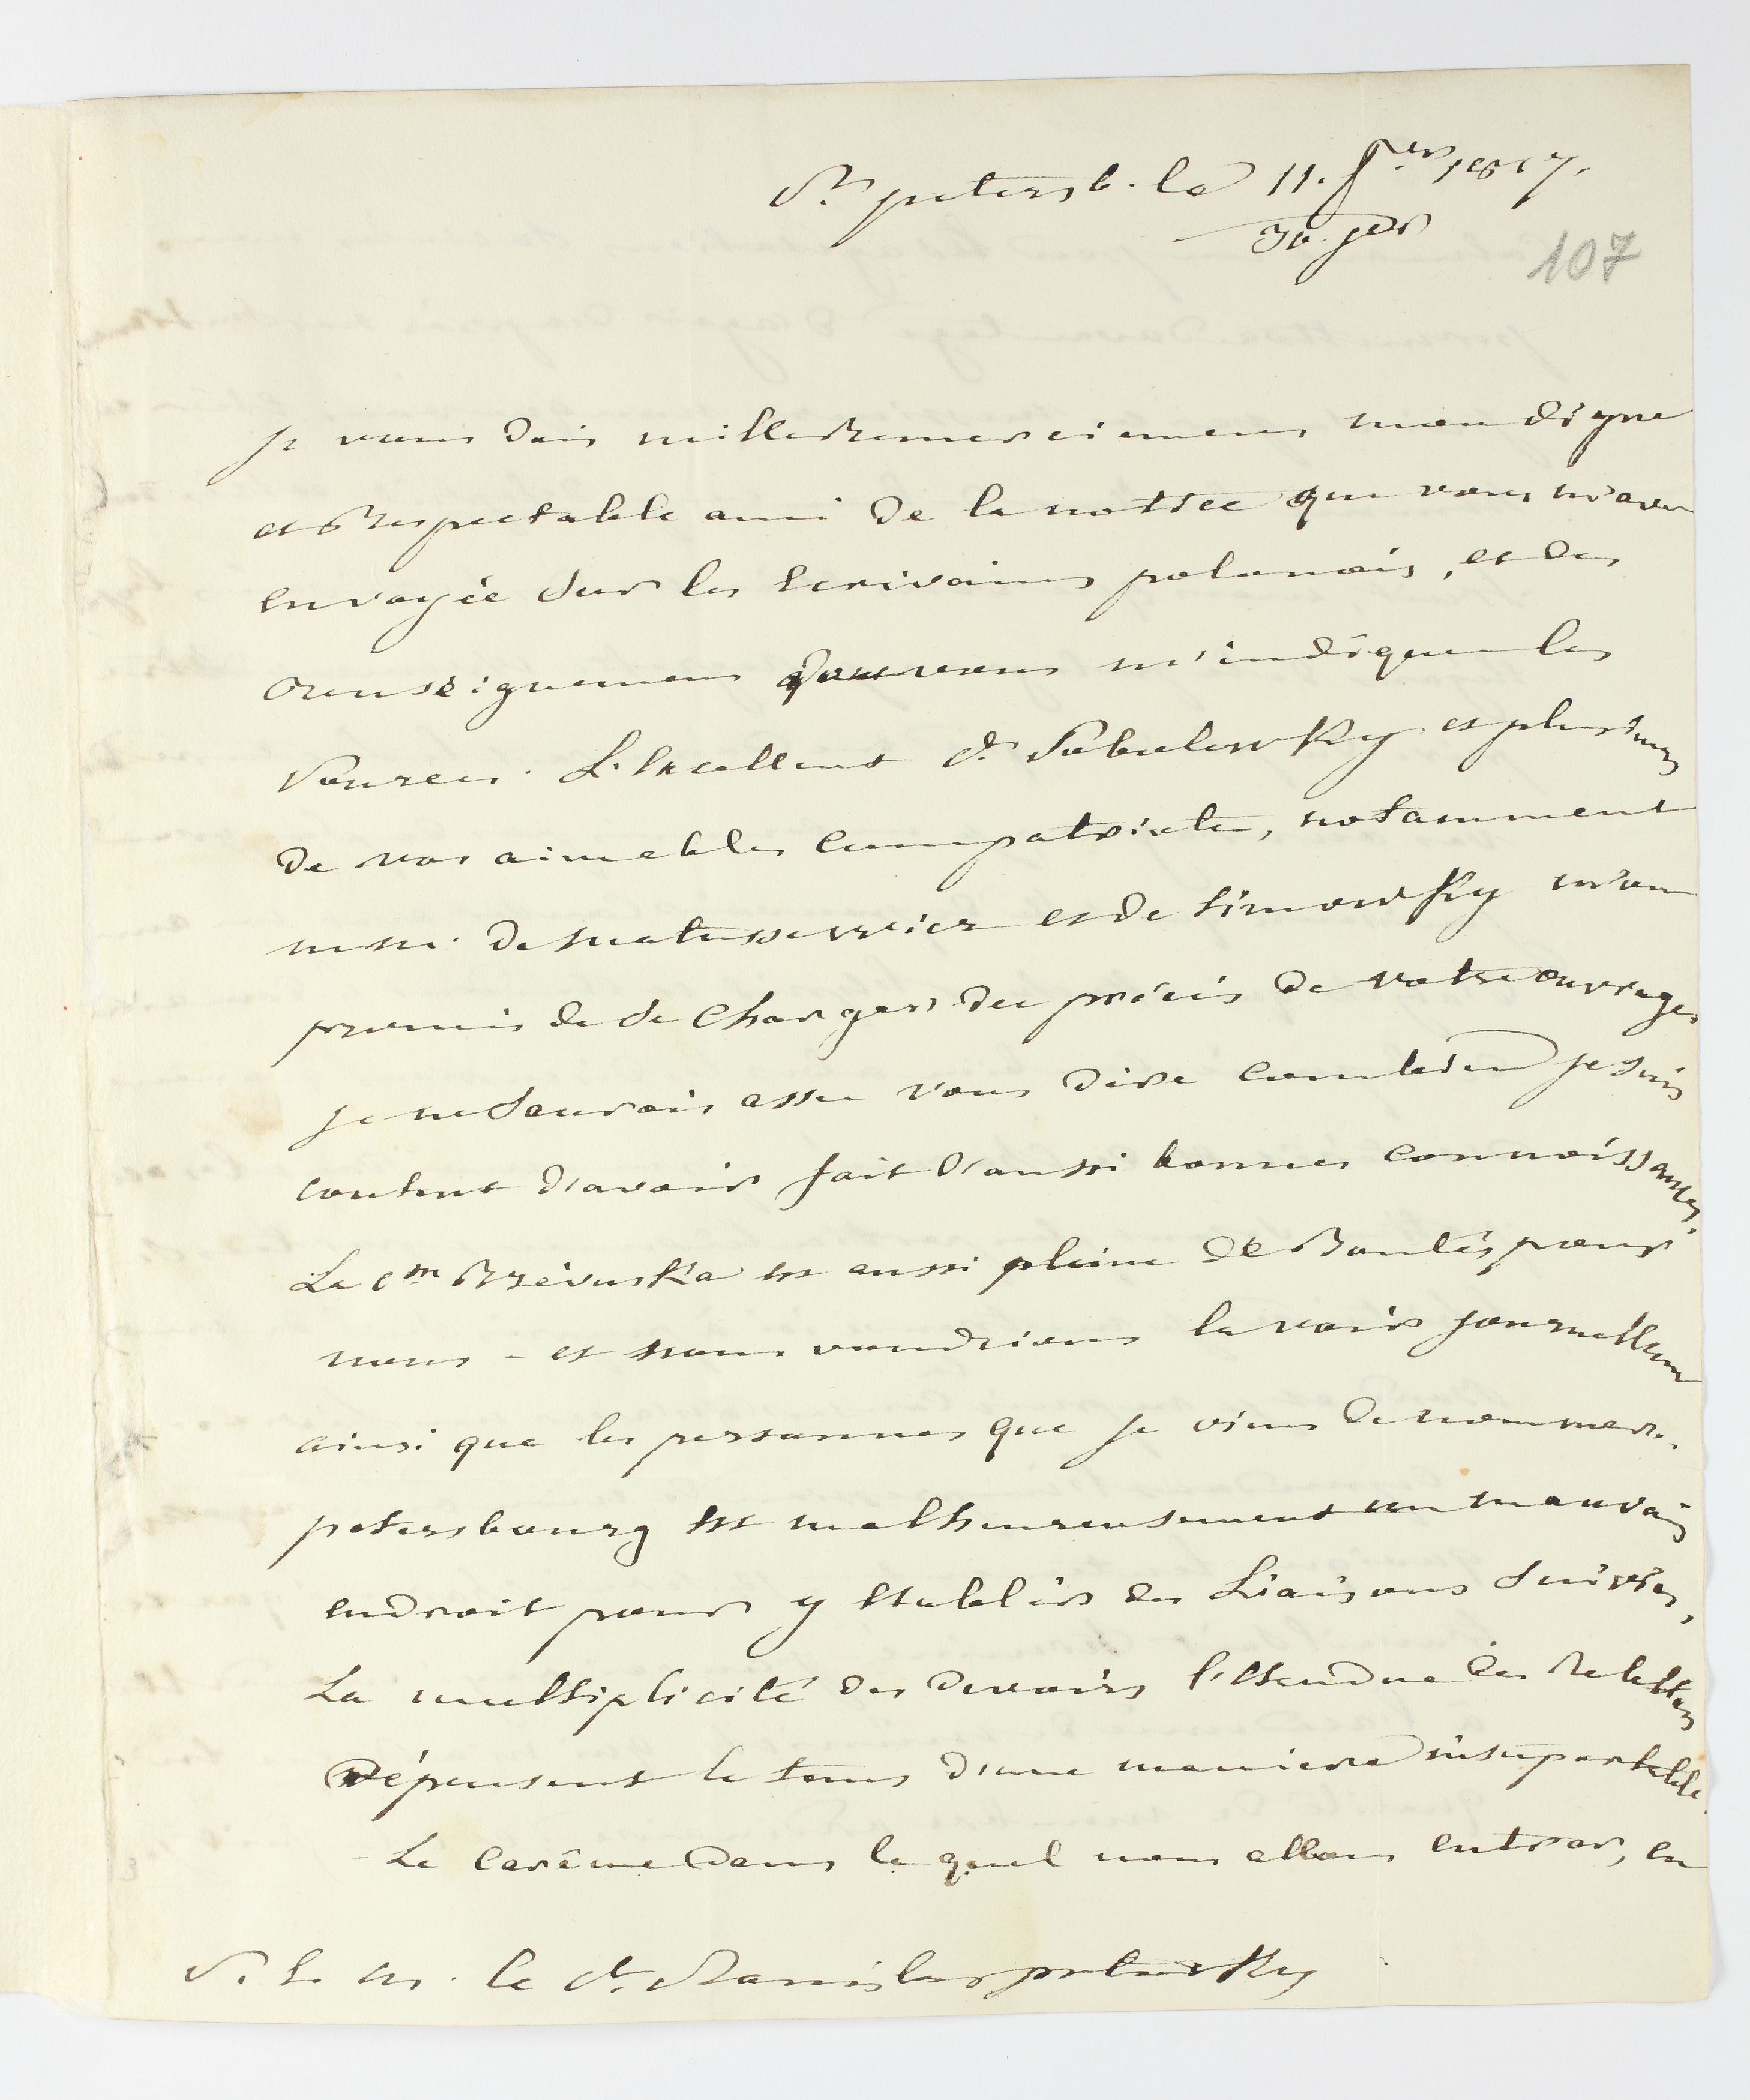 St petersb. le 11. fevr 1817.
30. jer
107
je vous dois mille remerciemens mon digne
et Respectable ami de la notice que vous m'avez
envoyée sur les Ecrivains polonois, et des
renseignemens dont vous m'indiquez les
sources. L'Excellent Ct. Sobolewsky et plusieurs
de vos aimables compatriotes, notamment
messrs. de matussewicz et de Linowsky m'ont
promis de se charger du précis de votre ouvrage,
je ne saurois assez vous dire combien je suis
content d'avoir fait d'aussi bonnes connoissances.
La Csse Rzévuska est aussi pleine de Bontés pour
nous – et nous voudrions la voir journellemt
ainsi que les personnes que je viens de nommer.
petersbourg est malheureusement un mauvais
endroit pour y Etablir des Liaisons suivies,
La multiplicité des devoirs l'Etendue des Relations
Dépensent le tems d'une maniere insupportable.
– Le Carême dans le quel nous allons entrer, en
S. E. M. le Ct. Stanislas potocky